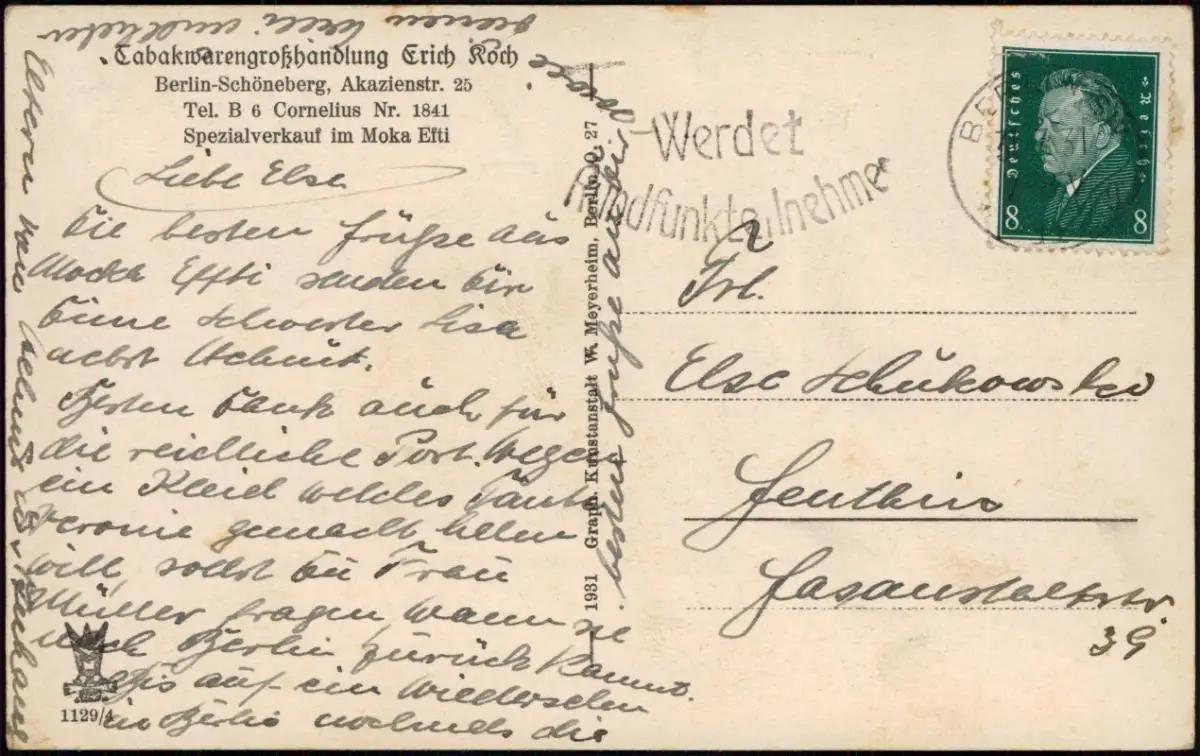 Tabakwarengroßhandlung Erich Koch
Berlin-Schöneberg, Akazienstr. 25
Tel. B 6 Cornelius Nr. 1841
Spezialverkauf im Moka Efti
Liebe Else
Die besten Grüße aus
Mocka Effti senden Dir
Deine Schwester Lisa
nebst Helmut.
Besten Dank auch für
die reichliche Post. Wegen
ein Kleid welches Tante
gemacht haben
will, sollst Du Frau
Müller fragen wann sie
nach Berlin zurück kommt.
Bis auf ein Wiedersehen
in Berlin nochmals die
besten Grüße an Dir
Eltern von Helmut
1129/4
1931 Graph. Kunstanstalt W. Meyerheim, Berlin O. 27
Werdet
Rundfunkteilnehmer
BERLIN
31
Deutsches Reich
8 8
Frl.
Else Schukowski
Genthin
Gasanstaltstr.
39